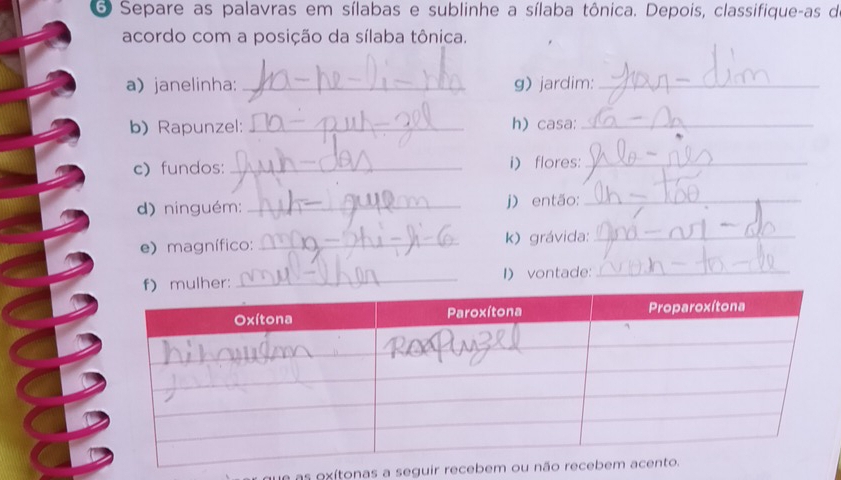 6 Separe as palavras em sílabas e sublinhe a sílaba tônica. Depois, classifique-as d
acordo com a posição da sílaba tônica.
a) janelinha: ja-ne-li-nha
g) jardim: jar-dim
b) Rapunzel: Ra-pun-zel
h) casa: ca-sa
c) fundos: fun-dos
i) flores: flo-res
d) ninguém: nin-guem
j) então: en-tão
e) magnífico:
k) grávida: grá-vi-da
f) mulher: mul-lher
l) vontade: von-ta-de
Oxítona Paroxítona Proparoxítona
Raapuzel
que as oxítonas a seguir recebem ou não recebem acento.